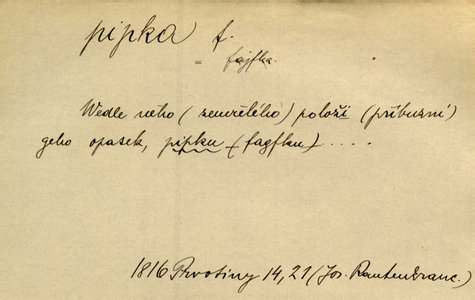 pipka f.
= fajfka.
Wedle něho (zemřelého) položí (příbuzní)
geho opasek, pipku (fagfku) . . . .
1816 Prvotiny 14, 21 (Jos. Rautenkranc.)